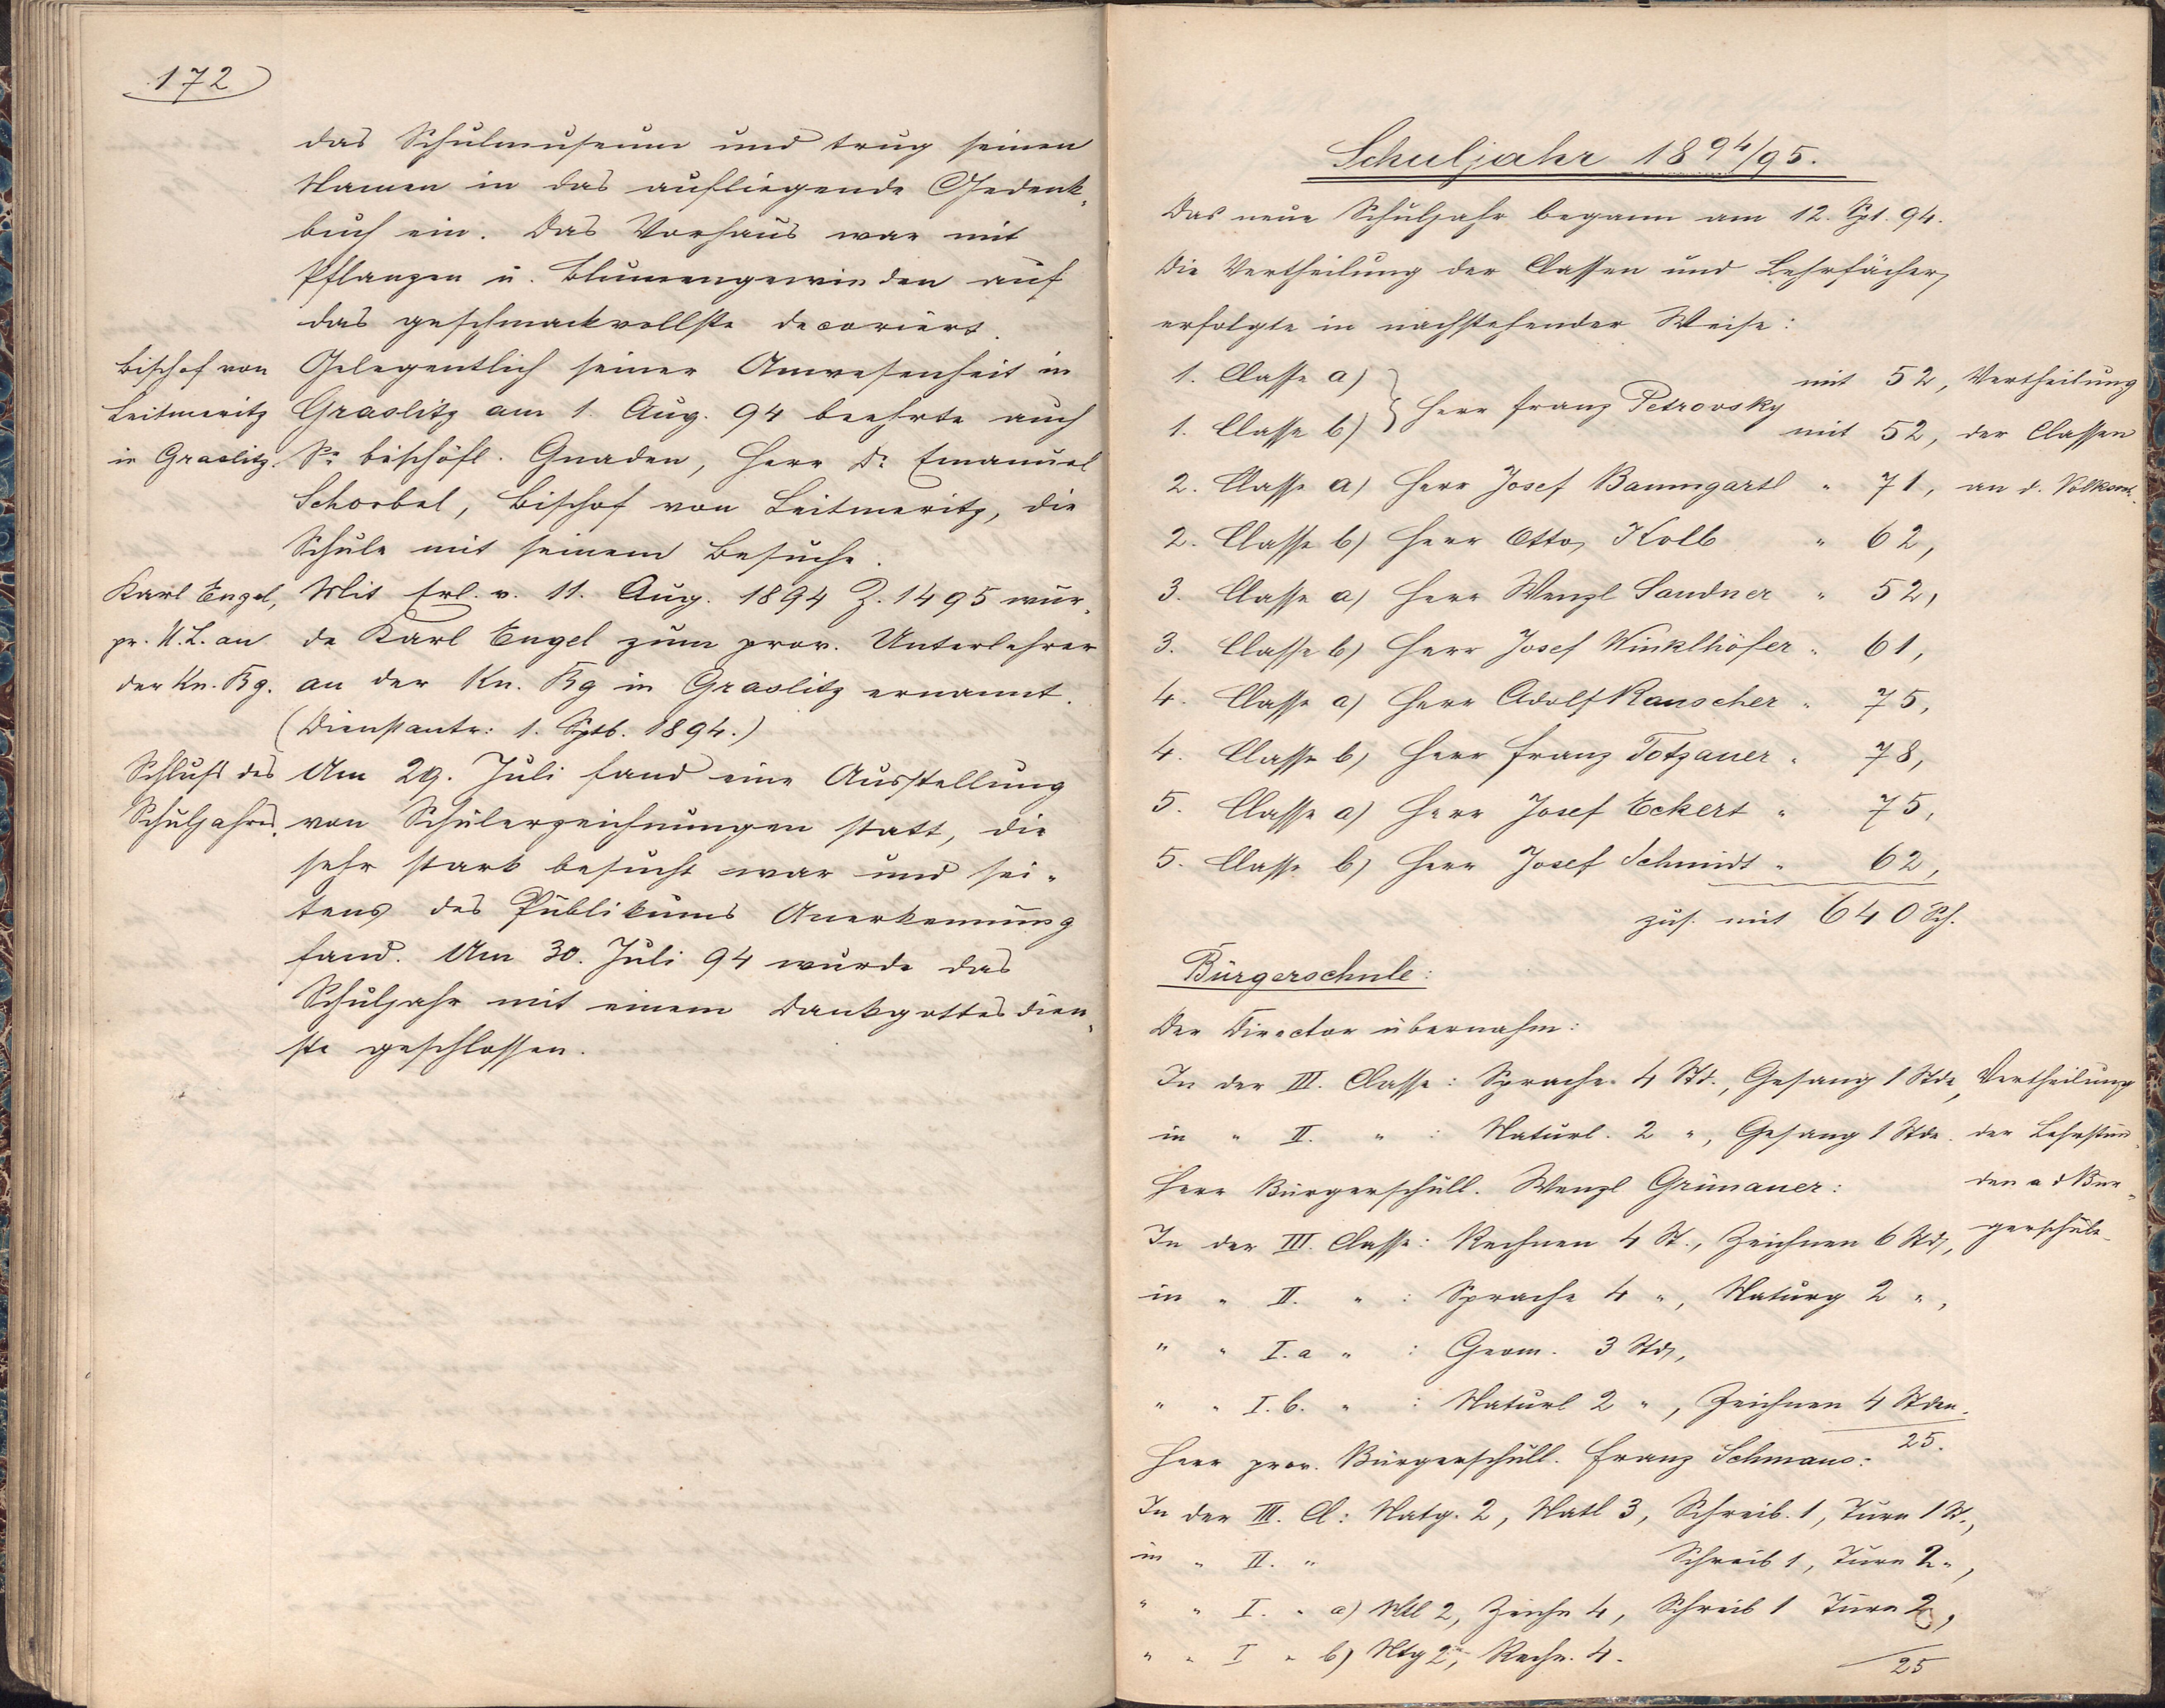 172
das Schulmuseum und trug seinen
Namen in das aufliegende Gedenk-
buch ein. Das Vorhaus war mit
Pflanzen u. Blumengewinden auf
das geschmackvollste decoriert.
Bischof von
Leitmeritz
in Graslitz.
Gelegentlich seiner Anwesenheit in
Graslitz am 1. Aug. 94 beehrte auch
Se bischöfl. Gnaden, Herr Dr Emanuel
Schoebel, Bischof von Leitmeritz, die
Schule mit seinem Besuche.
Karl Engel,
pr. U. L. an
der Kn. Bg.
Mit Erl. v. 11. Aug. 1894 Z. 1495 wur-
de Karl Engel zum prov. Unterlehrer
an der Kn. Bg in Graslitz ernannt.
(Dienstantr: 1. Sptb. 1894.)
Schluß des
Schuljahres.
Am 29. Juli fand eine Ausstellung
von Schülerzeichnungen statt, die
sehr stark besucht war und sei-
tens des Publikums Anerkennung
fand. Am 30. Juli 94 wurde das
Schuljahr mit einem Dankgottesdien-
ste geschlossen.
Schuljahr 1894/95.
Das neue Schuljahr begann am 12. Spt. 94.
Die Vertheilung der Classen und Lehrfächer
erfolgte in nachstehender Weise:
Vertheilung
der Classen
an d. Volkssch.
1. Classe a) } Herr Franz Petrovsky mit 52,
1. Classe b) } mit 52,
2. Classe a) Herr Josef Baumgartl " 71,
2. Classe b) Herr Otto Kolb " 62,
3. Classe a) Herr Wenzl Sandner " 52,
3. Classe b) Herr Josef Winklhöfer " 61,
4. Classe a) Herr Adolf Rauscher " 75,
4. Classe b) Herr Franz Totzauer " 78,
5. Classe a) Herr Josef Eckert " 75,
5. Classe b) Herr Josef Schmidt " 62,
zus. mit 640 Sch.
Bürgerschule:
Der Director übernahm:
Vertheilung
der Lehrstun-
den a d Bür-
gerschule
In der III. Classe: Sprache 4 Std., Gesang 1 Stde,
in " II. " : Naturl. 2 ", Gesang 1 Stde.
Herr Bürgerschull. Wenzl Grünauer:
In der III. Classe: Rechnen 4 St., Zeichnen 6 Std,
in " II. " : Sprache 4 ", Naturg 2 ",
" " I. a " : Geom. 3 Std,
" " I. b. " : Naturl 2 ", Zeichnen 4 Stden.
25.
Herr prov. Bürgerschull. Franz Schmaus:
In der III. Cl: Natg. 2, Natl 3, Schreib. 1, Turn 1 St.,
in " II. " Schreib 1, Turn 2 ",
" " I. " a) Ntl 2, Zeichn 4, Schreib 1 Turn 2,
" " I " b) Ntg 2, Rechn. 4.
25